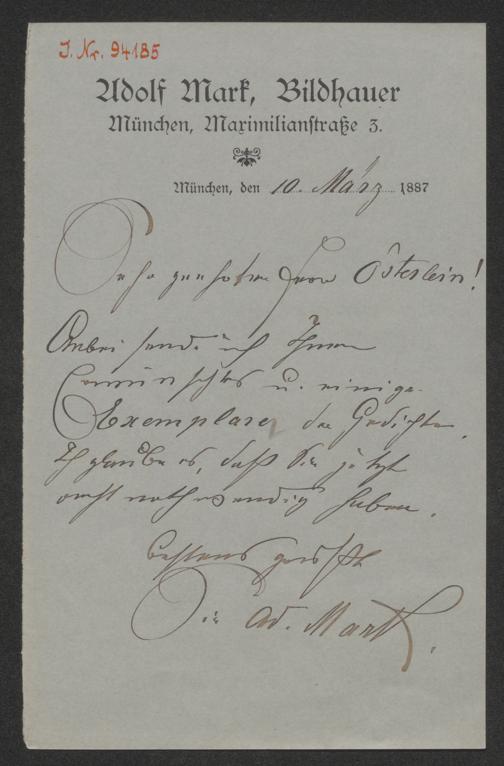 J. Nr. 94185
Adolf Mark, Bildhauer
München, Maximilianstraße 3.
München, den 10. März 1887
Sehr geehrter Herr Österlein!
Anbei sende ich Ihnen
u. einige
Exemplare der Gedichte.
Ich glaube es, daß Sie jetzt
nothwendig haben.
bestens grüßt
Sie Ad. Mark.